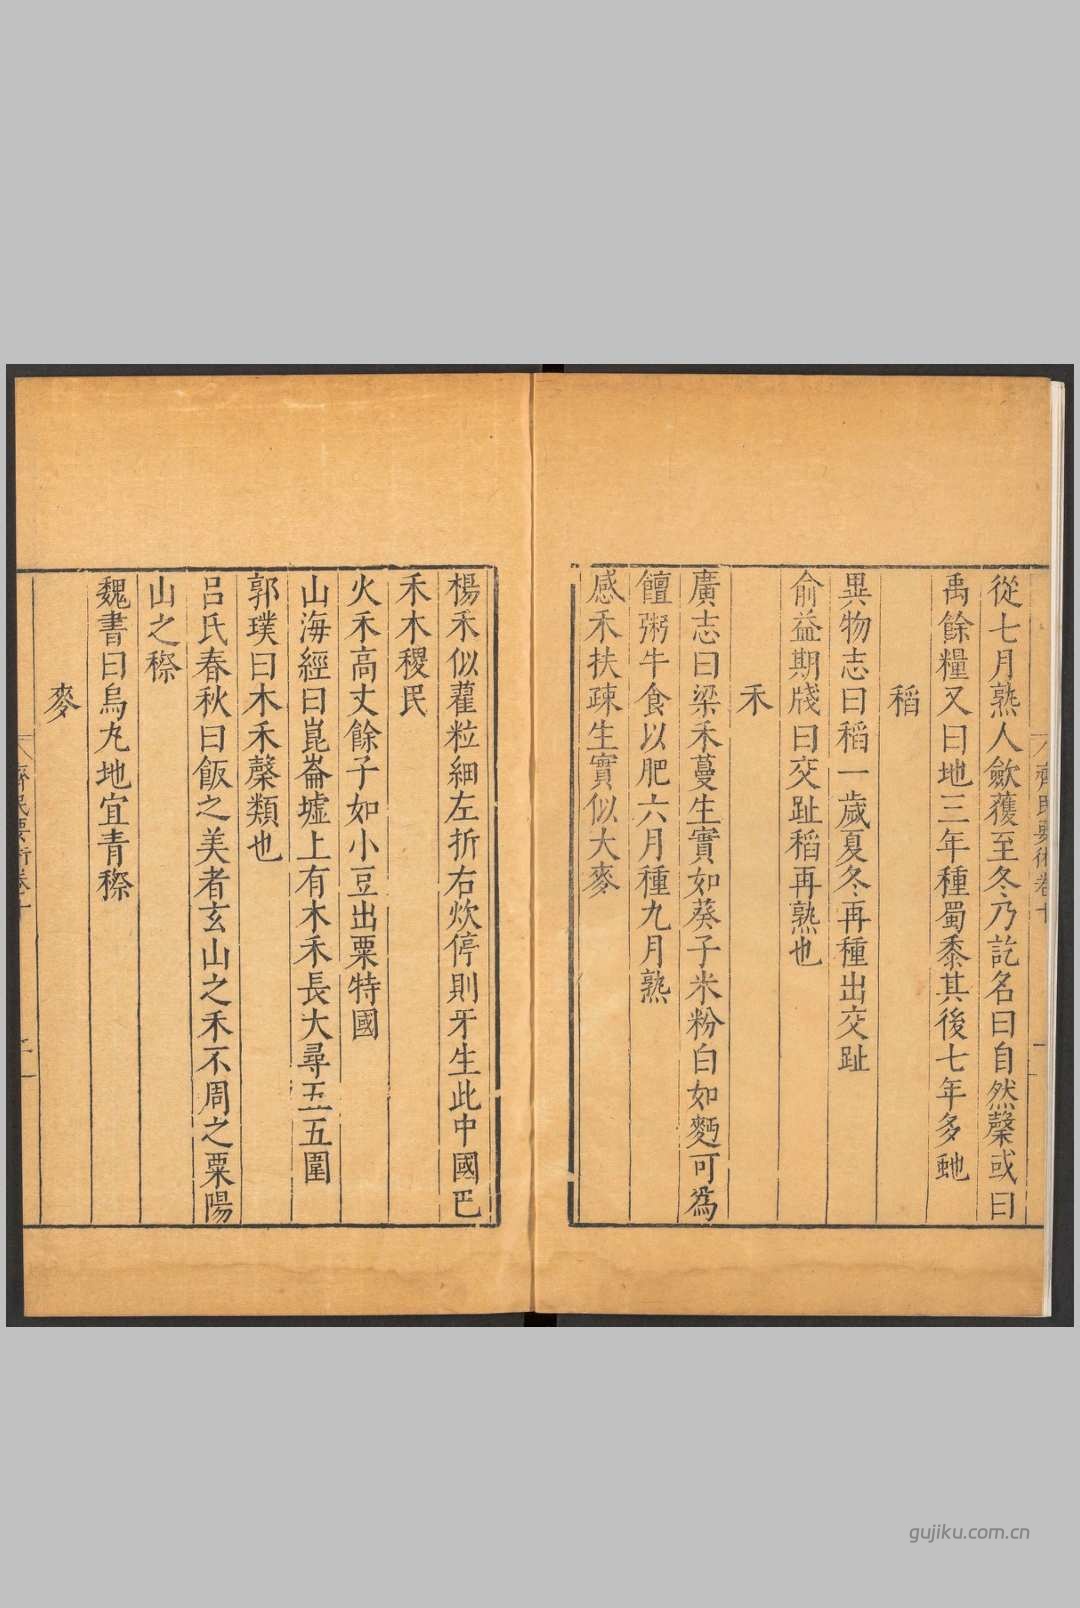 從七月熟人歛穫至冬乃訖名曰自然榖或曰
禹餘糧又曰地三年種蜀黍其後七年多虵
稻
異物志曰稻一歲夏冬再種出交趾
俞益期牋曰交趾稻再熟也
禾
廣志曰梁禾蔓生實如葵子米粉白如麪可爲
饘粥牛食以肥六月種九月熟
感禾扶疎生實似大麥
楊禾似雚粒細左折右炊停則牙生此中國巴
禾木稷民
火禾高丈餘子如小豆出粟特國
山海經曰崑崙墟上有木禾長大尋五五圍
郭璞曰木禾榖類也
呂氏春秋曰飯之美者玄山之禾不周之粟陽
山之穄
魏書曰烏丸地宜青穄
麥
齊民要術卷十
齊民要術卷十
gujiku.com.cn